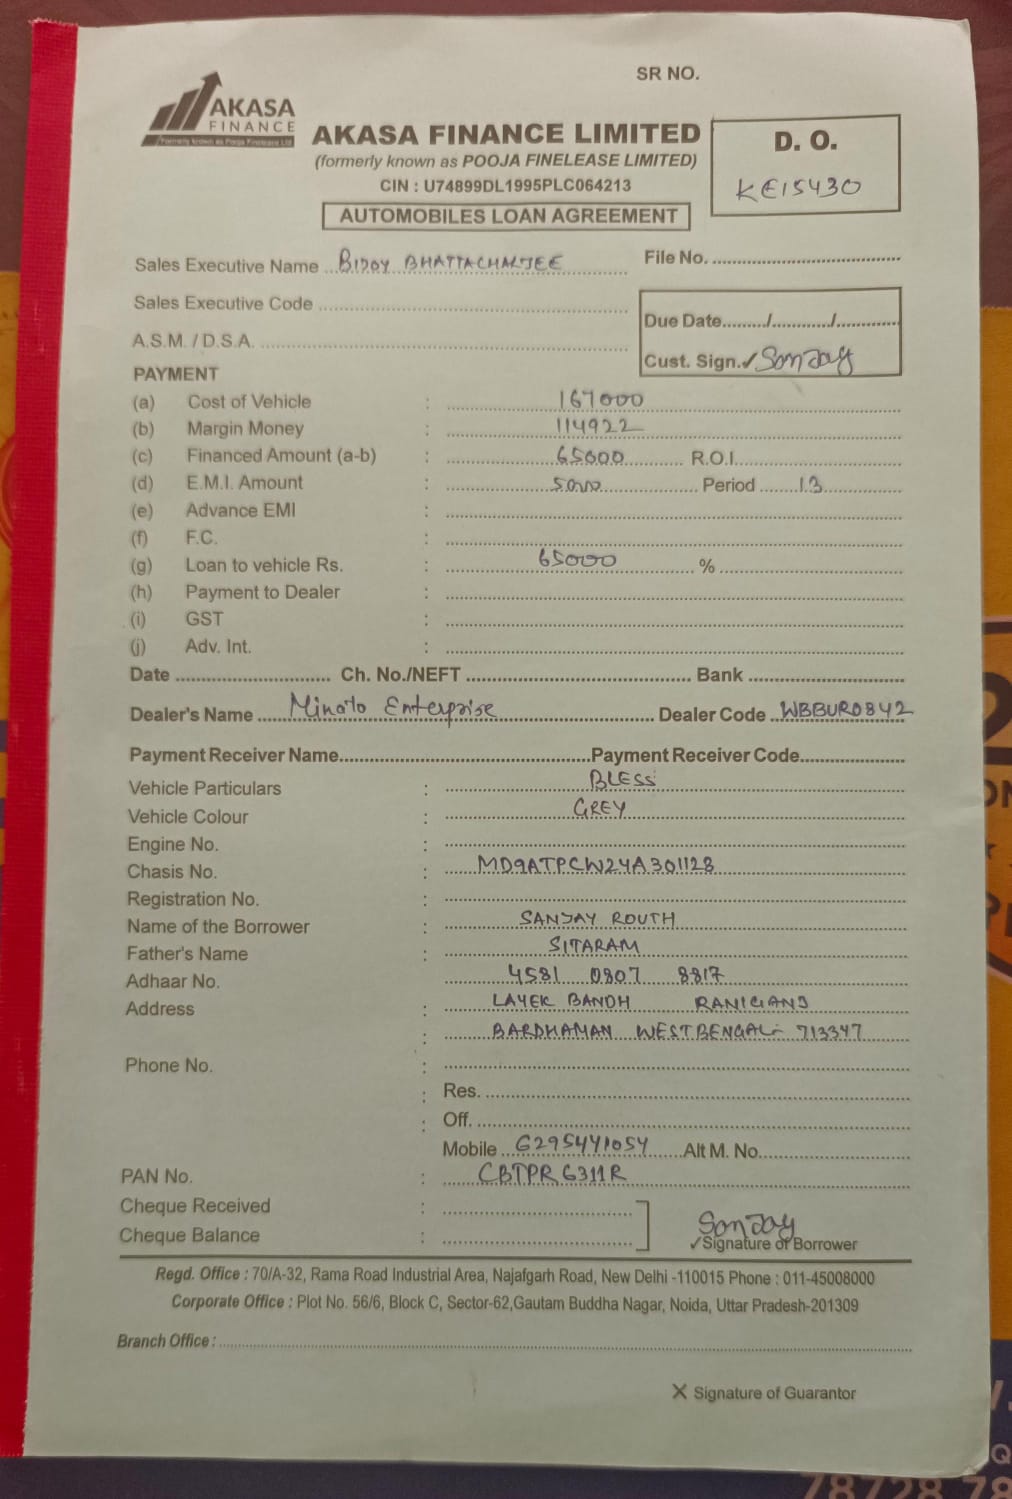 SR NO.
AKASA
FINANCE
Formerly known as Pooja Finelease Ltd
AKASA FINANCE LIMITED
(formerly known as POOJA FINELEASE LIMITED)
CIN : U74899DL1995PLC064213
AUTOMOBILES LOAN AGREEMENT
D. O.
KE15430
Sales Executive Name BIJOY BHATTACHARJEE
File No.
Sales Executive Code
Due Date / /
A.S.M. / D.S.A.
Cust. Sign.✓ Sanjay
PAYMENT
(a) Cost of Vehicle : 167000
(b) Margin Money : 114922
(c) Financed Amount (a-b) : 65000 R.O.I.
(d) E.M.I. Amount : 5000 Period 13
(e) Advance EMI :
(f) F.C. :
(g) Loan to vehicle Rs. : 65000 %
(h) Payment to Dealer :
(i) GST :
(j) Adv. Int. :
Date Ch. No./NEFT Bank
Dealer's Name Minato Enterprise Dealer Code WBBUR0842
Payment Receiver Name Payment Receiver Code
Vehicle Particulars : BLESS
Vehicle Colour : GREY
Engine No. :
Chasis No. : MD9ATPCW24A301128
Registration No. :
Name of the Borrower : SANJAY ROUTH
Father's Name : SITARAM
Adhaar No. 4581 0807 8817
Address : LAYEK BANDH RANIGANJ
: BARDHAMAN WESTBENGAL- 713347
Phone No. :
: Res.
: Off.
Mobile 6295441054 Alt M. No.
PAN No. : CBTPR6311R
Cheque Received :
Cheque Balance :
Sanjay
✓Signature of Borrower
Regd. Office : 70/A-32, Rama Road Industrial Area, Najafgarh Road, New Delhi -110015 Phone : 011-45008000
Corporate Office : Plot No. 56/6, Block C, Sector-62,Gautam Buddha Nagar, Noida, Uttar Pradesh-201309
Branch Office :
X Signature of Guarantor